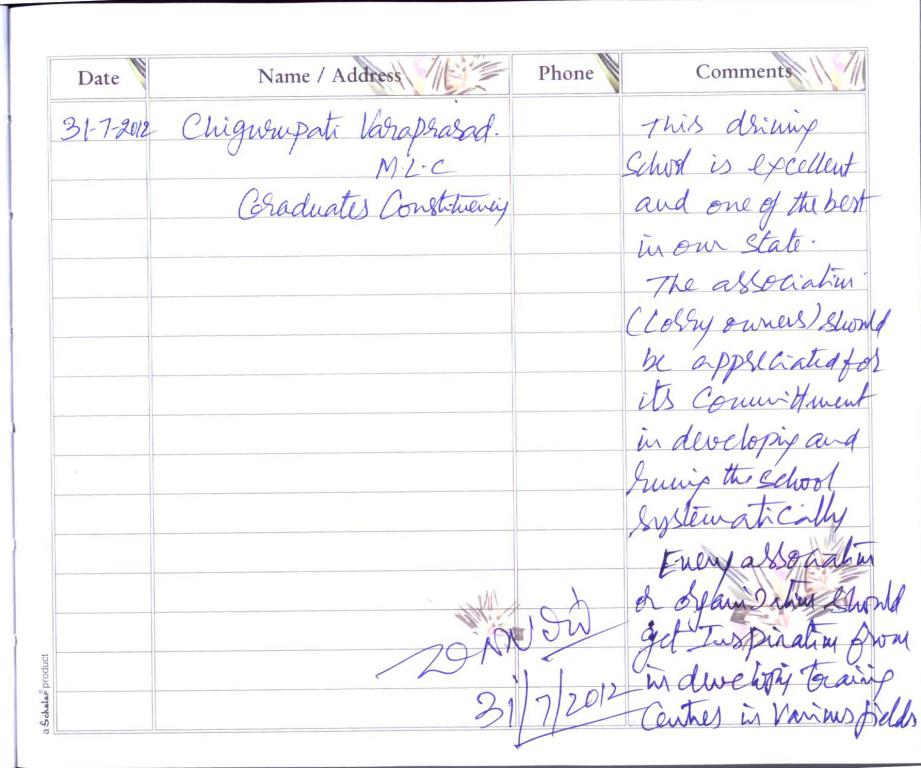 Date Name / Address Phone Comments
31-7-2012 Chigurupati Varaprasad. This driving
M.L.C School is excellent
Graduates Constituency and one of the best
in our state.
The association
(lorry owners) should
be appreciated for
its Committment
in developing and
runing the school
systematically
Every association
or organization should
get Inspiration from
in developing training
31/7/2012 Centres in Various fields
a Scholar product